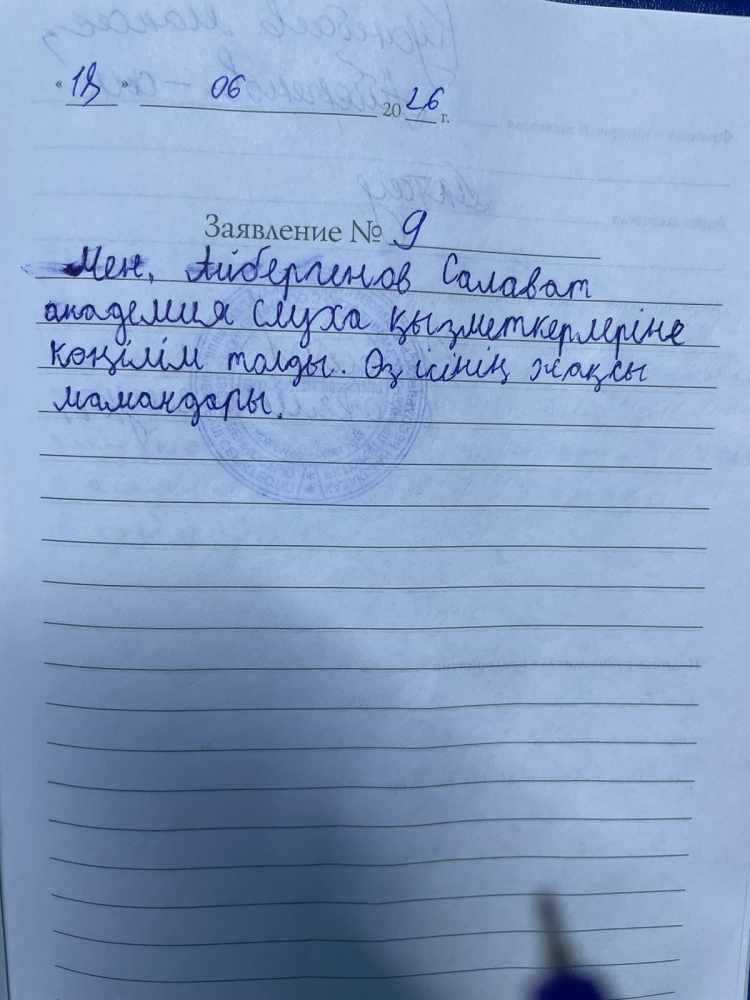 « 18 » 06 2026 г.
Заявление № 9
Мен, Айбергенов Салават
академия слуха қызметкерлеріне
көңілім толды. Өз ісінің жақсы
мамандары.